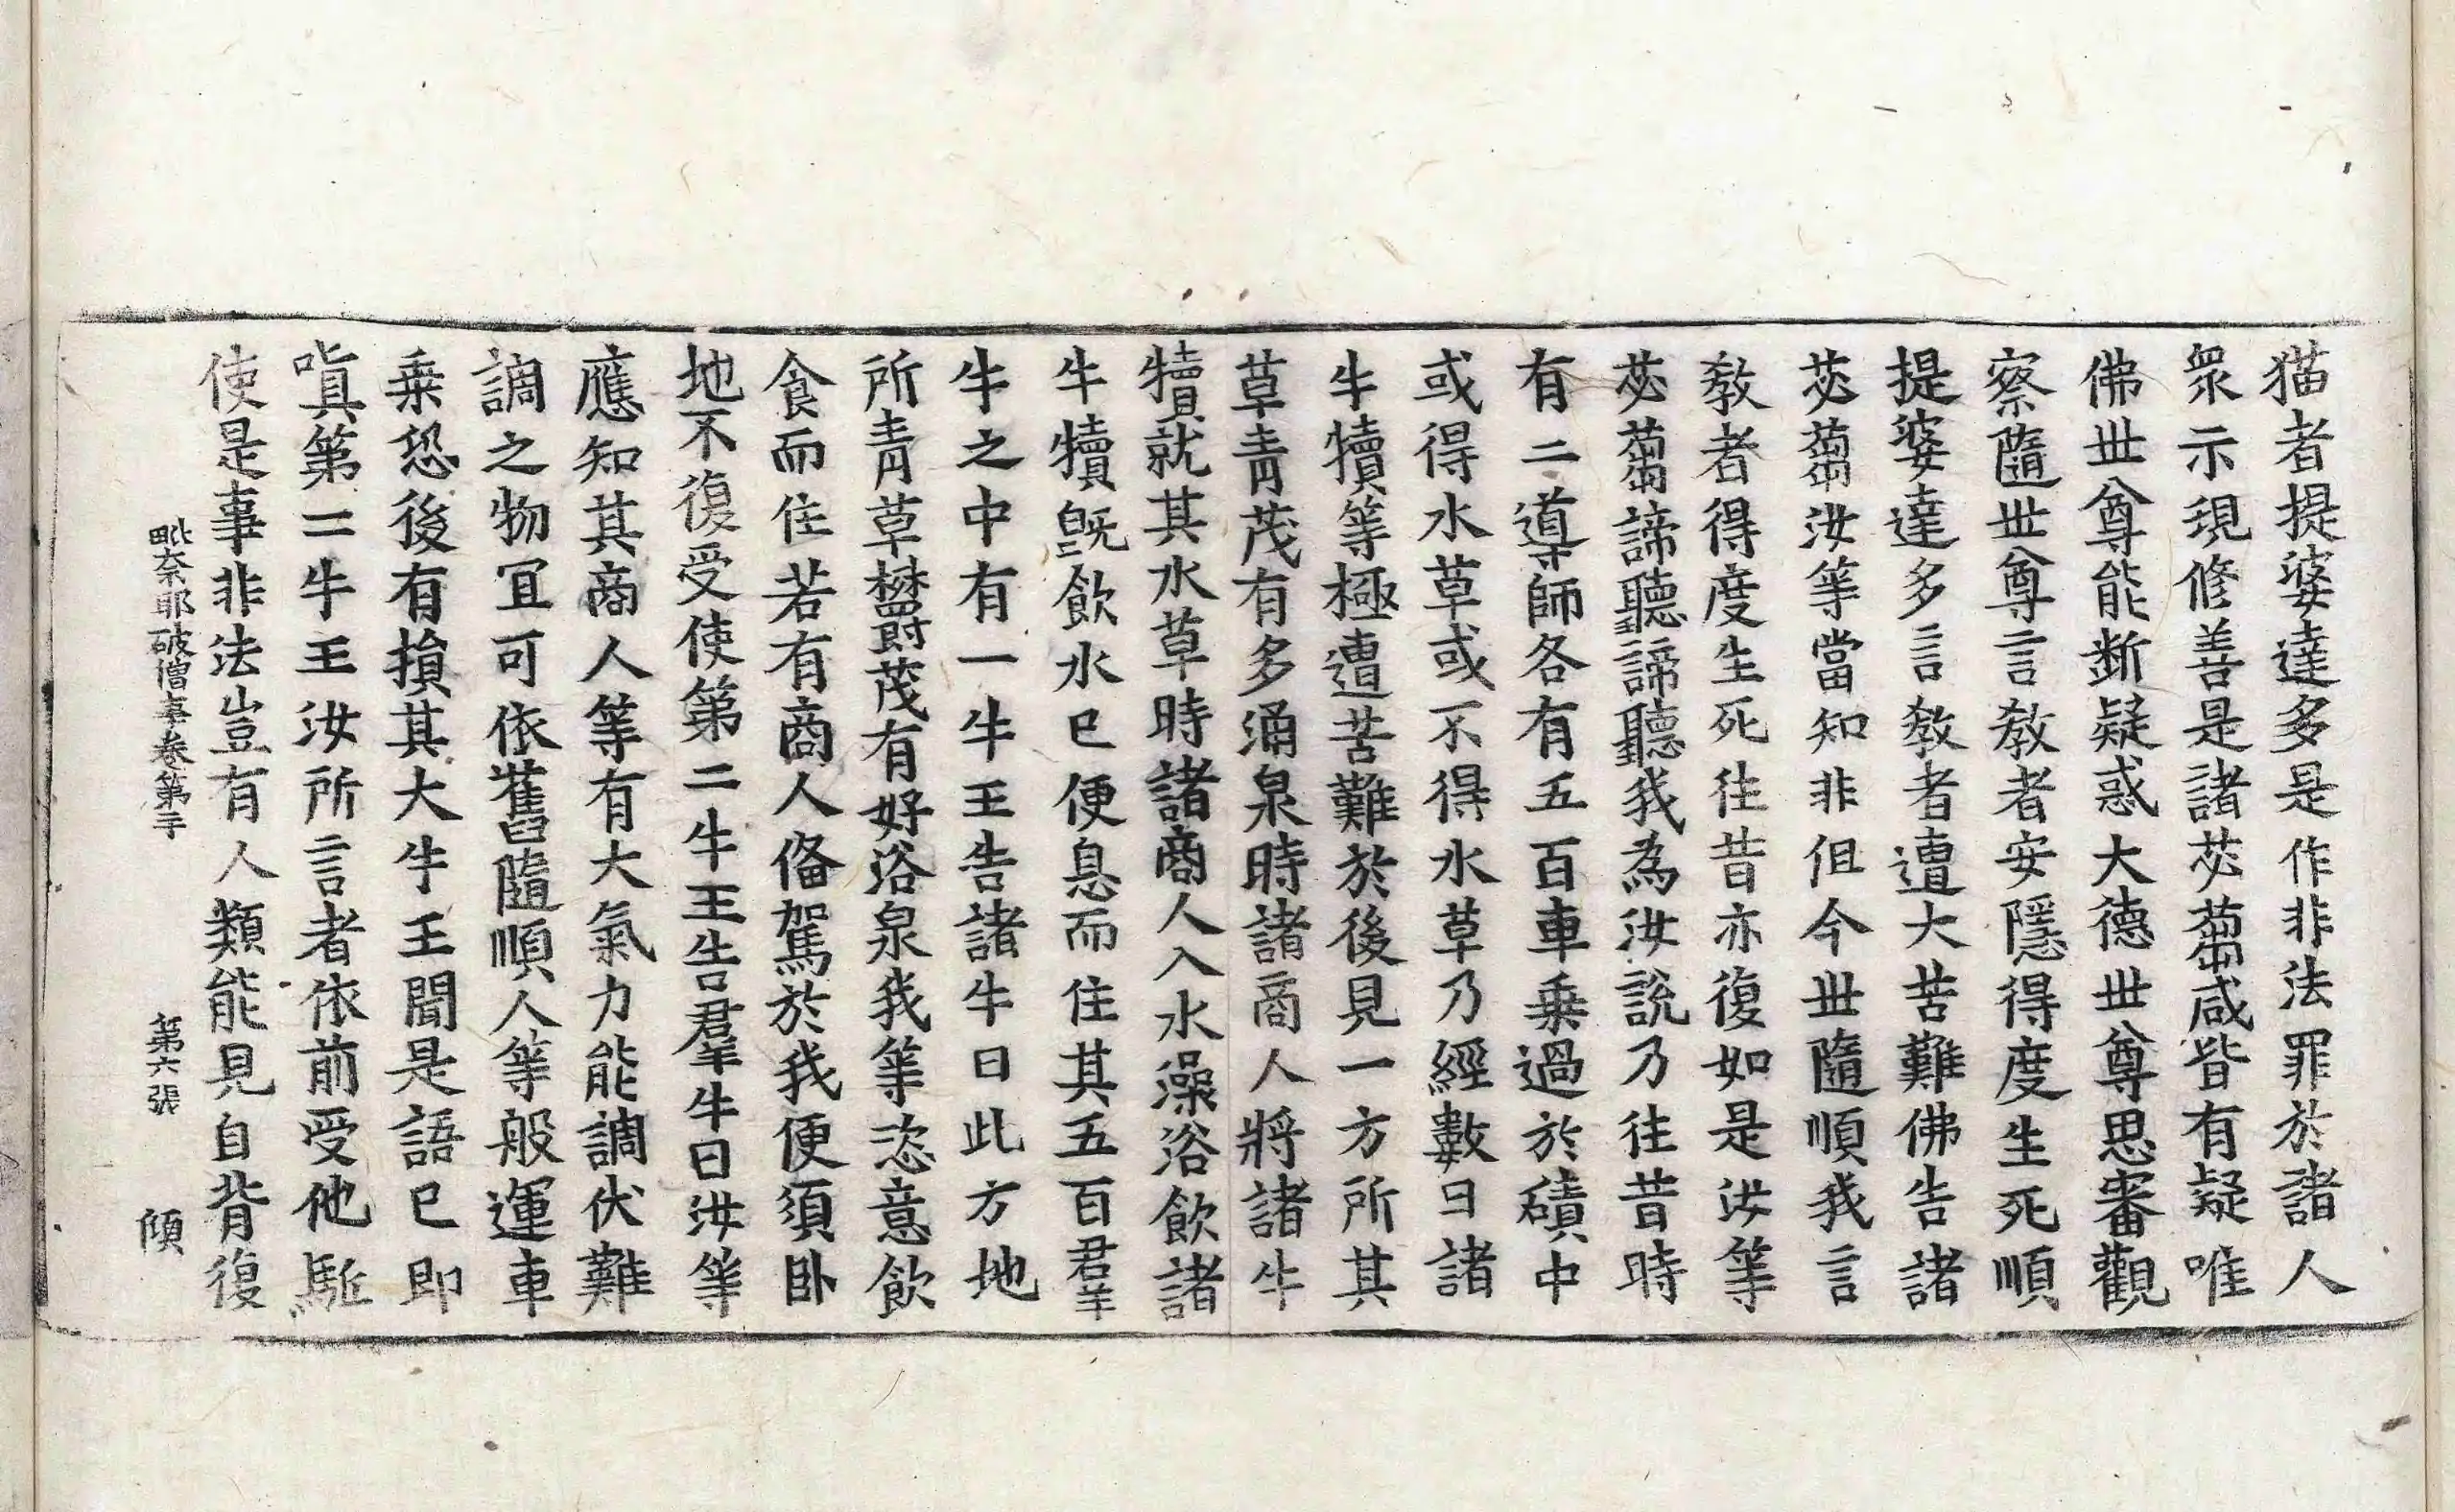 猫者提婆達多是作非法罪於諸人
衆示現修善是諸苾蒭咸皆有疑唯
佛世尊能断疑惑大德世尊思審觀
察隨世尊言教者安隱得度生死順
提婆達多言教者遭大苦難佛告諸
苾蒭汝等當知非但今世隨順我言
教者得度生死往昔亦復如是汝等
苾蒭諦聽諦聽我為汝說乃往昔時
有二導師各有五百車乗過於磧中
或得水草或不得水草乃經數日諸
牛犢等極遭苦難於後見一方所其
草青茂有多涌泉時諸商人將諸牛
犢就其水草時諸商人入水澡浴飲諸
牛犢旣飲水已便息而住其五百羣
牛之中有一牛王告諸牛曰此方地
所青草欝茂有好浴泉我等恣意飲
食而住若有商人俻駕於我便須卧
地不復受使第二牛王告羣牛曰汝等
應知其商人等有大氣力能調伏難
調之物冝可依舊隨順人等般運車
乗恐後有損其大牛王聞是語已即
嗔第二牛王汝所言者依前受他駈
使是事非法豈有人類能見自背復
毗奈耶破僧事卷第二十　第六張　傾